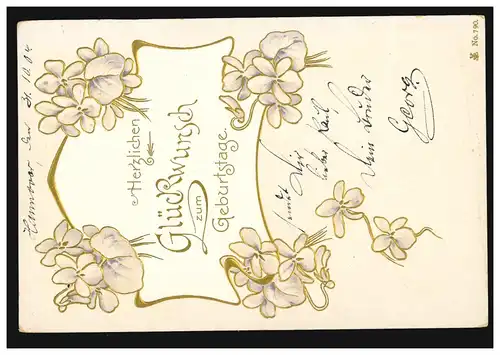 No. 790.
Hannover, den 31.10.04
Herzlichen
Glückwunsch
zum
Geburtstage.
sendet Dir
lieber Karl
Dein Bruder
Georg